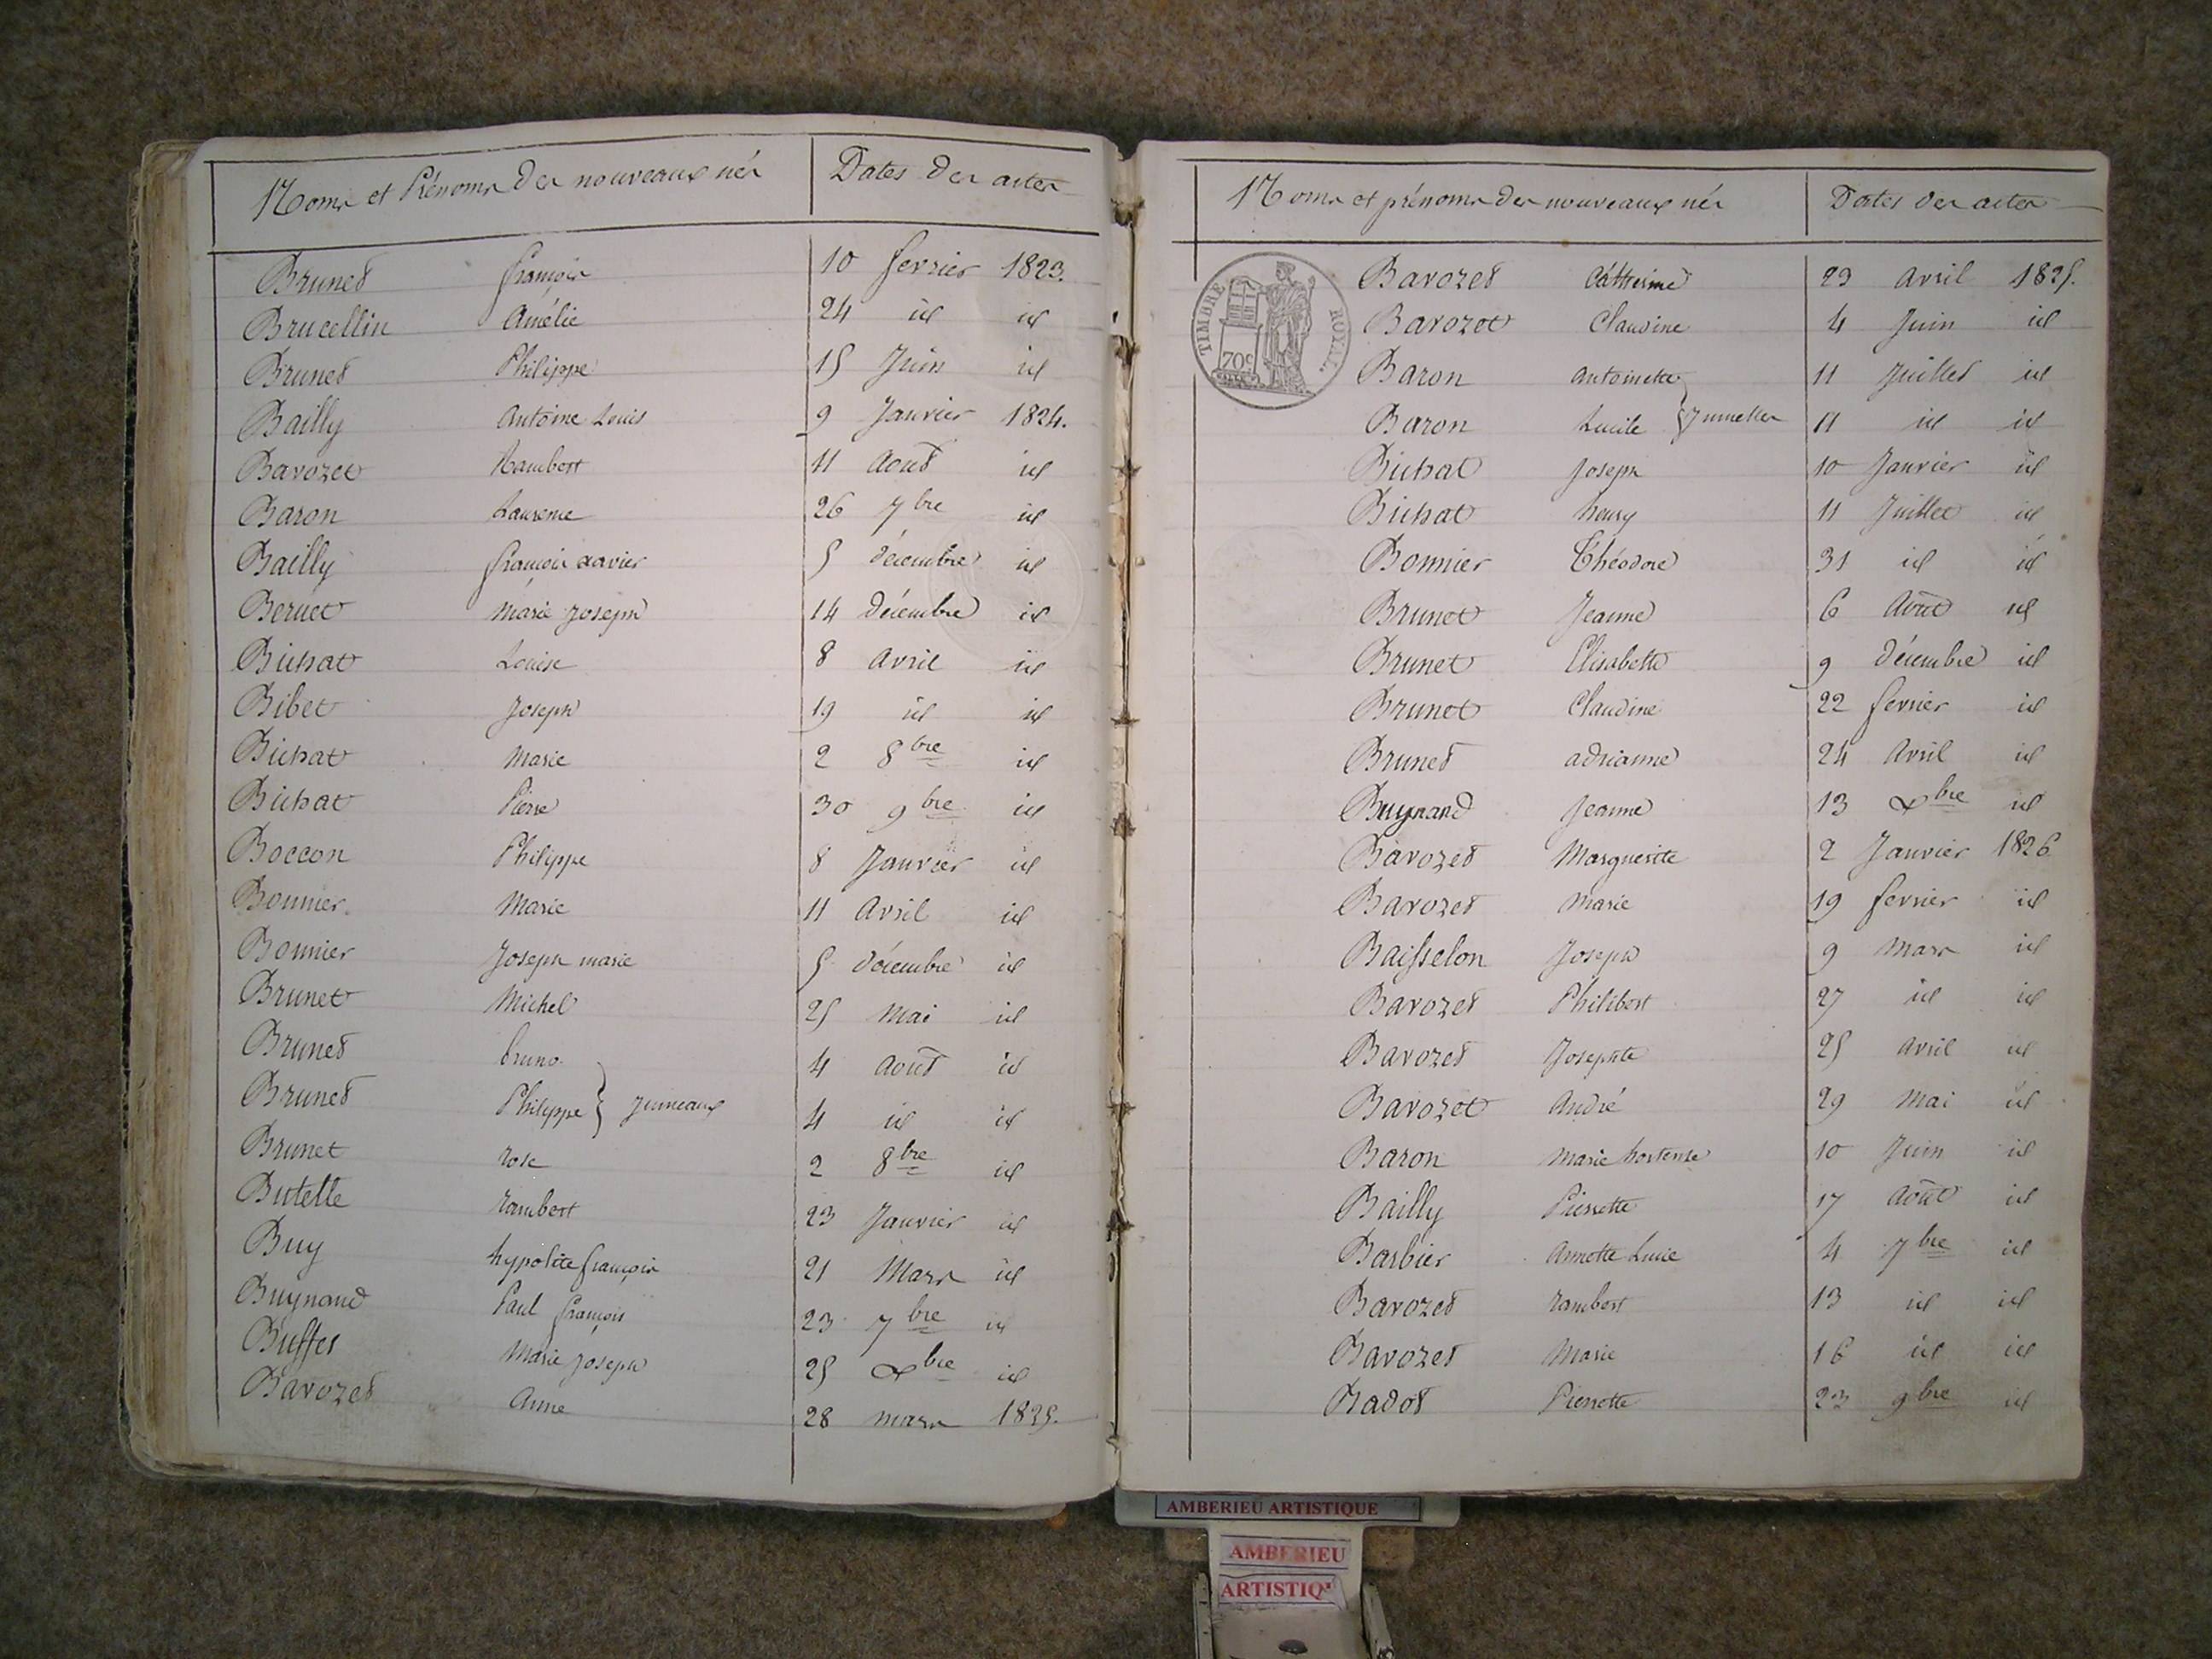 Noms et Prénoms des nouveaux nés Dates des actes
Brunet françois 10 fevrier 1823.
Brucellin Amélie 24 id id
Brunet Philippe 15 Juin id
Bailly Antoine Louis 9 Janvier 1824.
Bavozet Rambert 11 Aout id
Baron Laurence 26 7bre id
Bailly françois xavier 5 décembre id
Bernet Marie Joseph 14 décembre id
Bichat Louise 8 Avril id
Bibet Joseph 19 id id
Bichat Marie 2 8bre id
Bichat Pierre 30 9bre id
Boccon Philippe 8 Janvier id
Bonnier Marie 11 Avril id
Bonnier Joseph marie 5 décembre id
Brunet Michel 25 Mai id
Brunet bruno 4 Août id
Brunet Philippe } Jumeaux 4 id id
Brunet rose 2 8bre id
Butelle rambert 23 Janvier id
Buy hypolite françois 21 Mars id
Buynand Paul françois 23 7bre id
Buffet Marie Joseph 25 Xbre id
Bavozet Anne 28 mars 1825.
Noms et prénoms des nouveaux nés Dates des actes
TIMBRE ROYAL.
70c
Bavozet Catherine 23 Avril 1825.
Bavozet Claudine 4 Juin id
Baron Antoinette 11 Juillet id
Baron Lucile } Jumelles 11 id id
Bichat Joseph 10 Janvier id
Bichat henry 11 Juillet id
Bonnier Théodore 31 id id
Brunet Jeanne 6 Aout id
Brunet Elisabeth 9 décembre id
Brunet Claudine 22 fevrier id
Brunet adrianne 24 Avril id
Buynand Jeanne 13 Xbre id
Bavozet Marguerite 2 Janvier 1826
Bavozet Marie 19 fevrier id
Baisselon Joseph 9 Mars id
Bavozet Philibert 27 id id
Bavozet Josephte 25 Avril id
Bavozet André 29 Mai id
Baron Marie hortense 10 Juin id
Bailly Pierrette 17 Août id
Barbier Annette Lucie 4 7bre id
Bavozet rambert 13 id id
Bavozet Marie 16 id id
Badot Pierrette 23 9bre id
AMBERIEU ARTISTIQUE
AMBERIEU
ARTISTIQ